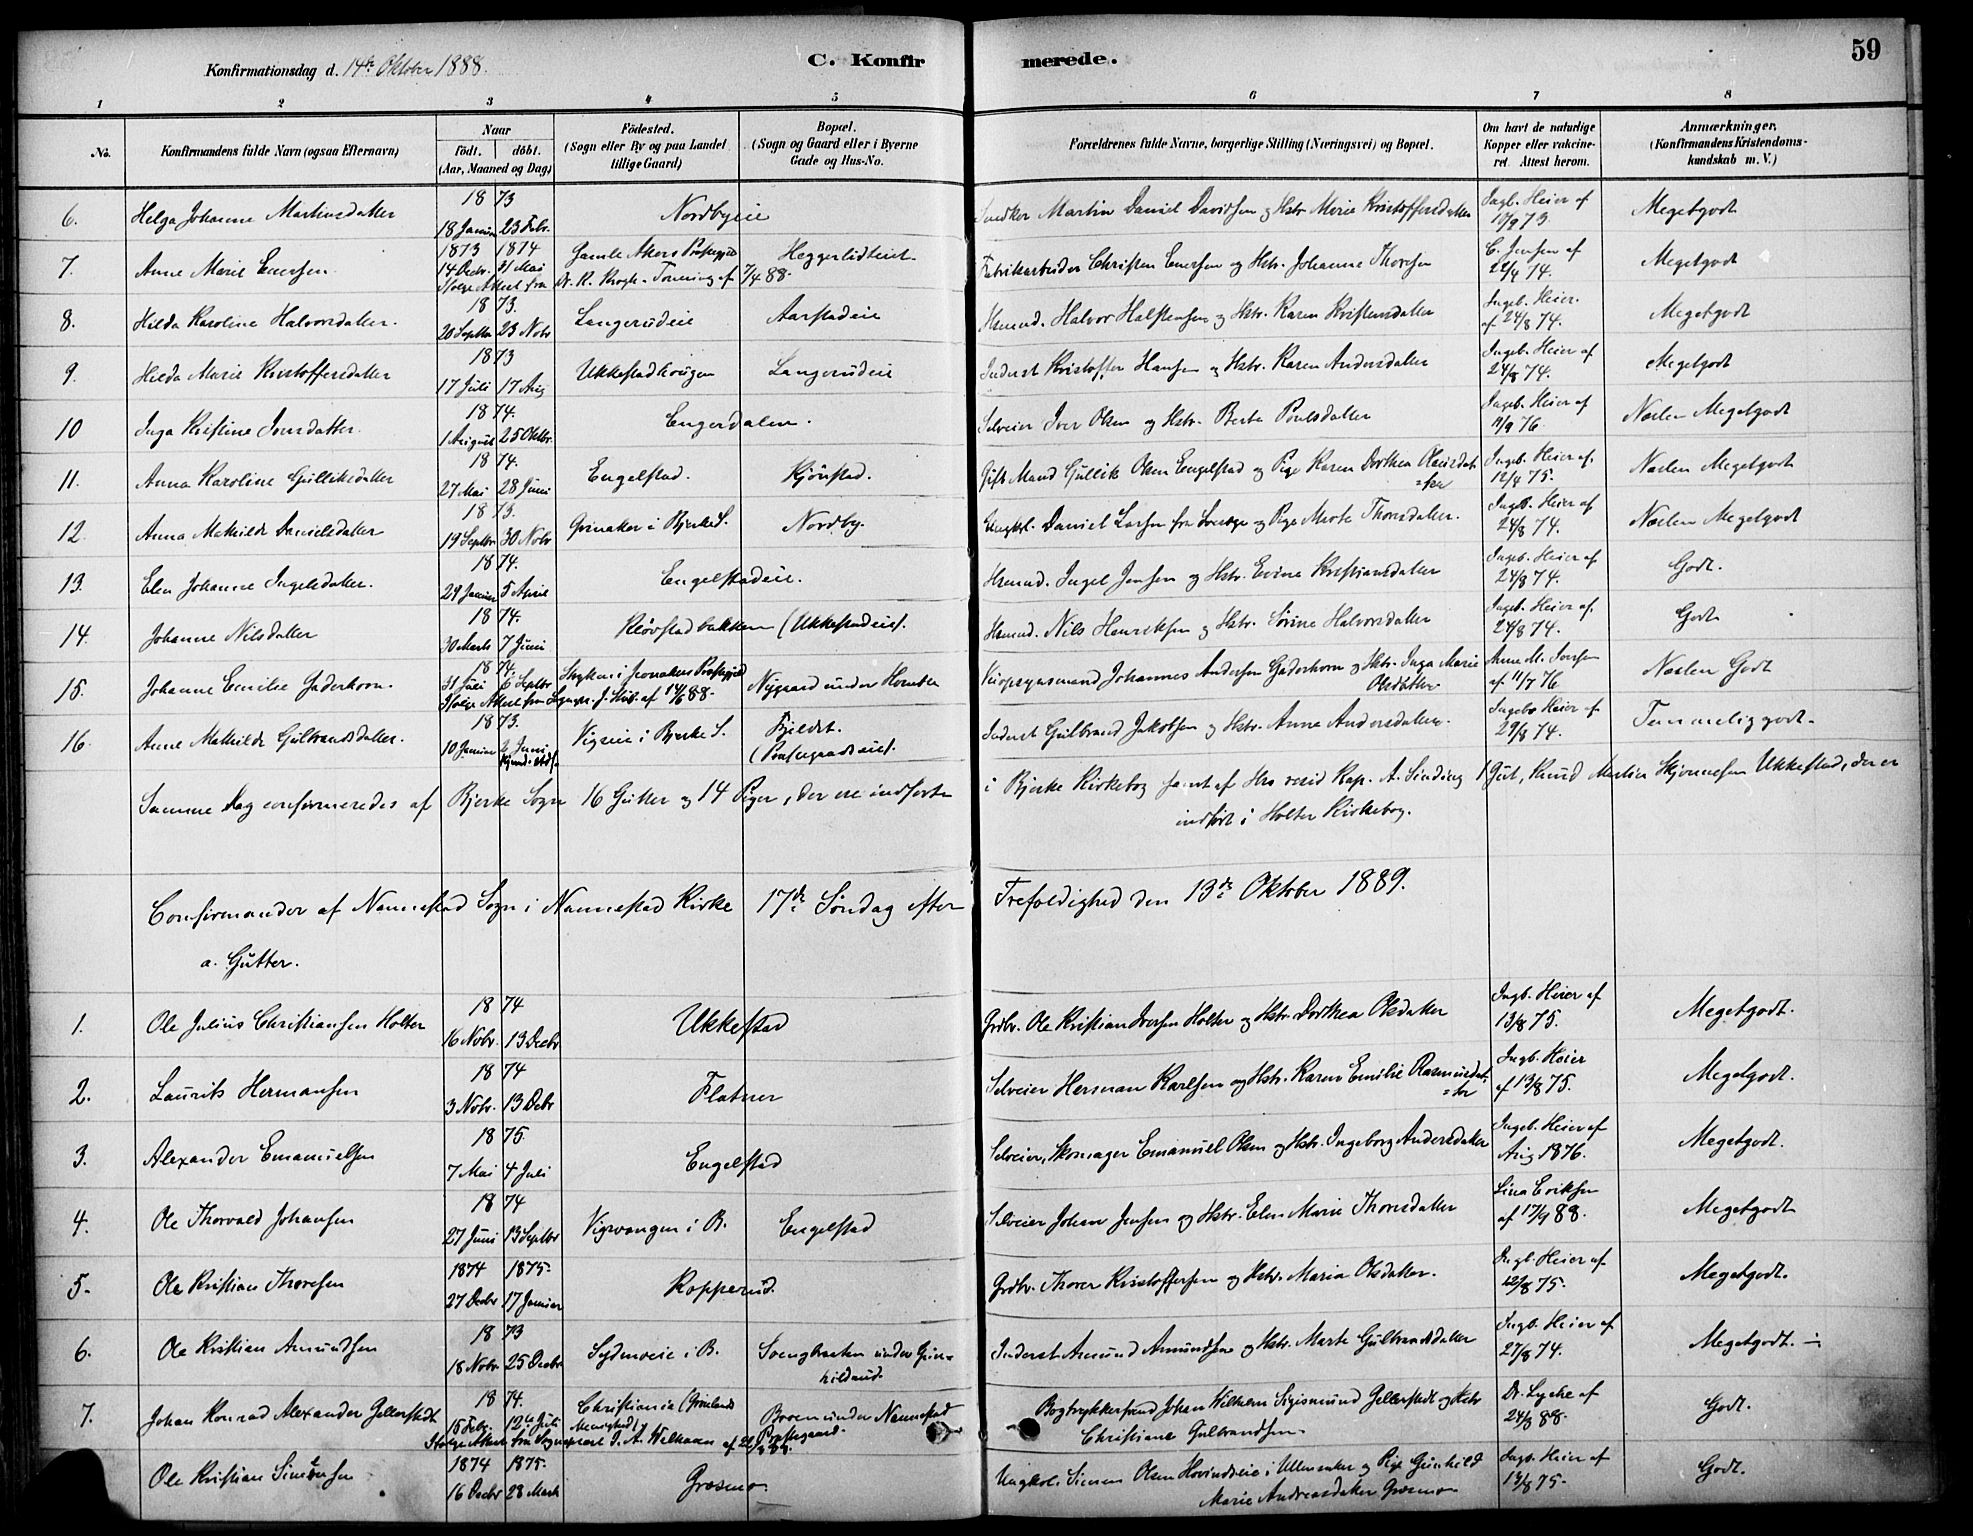 Konfirmationsdag d. 14de Oktober 1888.
C. Konfirmerede.
59
1 2 3 4 5 6 7 8
No.
Konfirmandens fulde Navn (ogsaa Efternavn)
Naar
födt. döbt.
(Aar, Maaned og Dag)
Födested.
(Sogn eller By og paa Landet
tillige Gaard)
Bopæl.
(Sogn og Gaard eller i Byerne
Gade og Hus-No.
Forældrenes fulde Navne, borgerlige Stilling (Næringsvei) og Bopæl.
Om havt de naturlige
Kopper eller vakcine-
ret. Attest herom.
Anmærkninger.
(Konfirmandens Kristendoms-
kundskab m. V.)
6. Helga Johanne Martinsdatter 1873 18 Januar 23 Febr. Nordbyeie Martin Daniel Davidsen og Hstr. Marie Kristoffersdatter Ingb. Heier af 10/9 73. Megetgodt
7. Anne Marie Enersen. 1873 14 Decbr. 1874 31 Mai Gamle Akers Præstegjeld Heggerlidteiet Fabrikarbeider Christen Enersen og Hstr. Johanne Thoresen C. Jensen af 22/4 74. Megetgodt
Ifølge Attest fra Dr. K. Krogh-Tonning af 7/4 88.
8. Hilda Karoline Halvorsdatter. 1873. 20 Septbr 23 Nobr Langerudeie Aarstadeie Husmd. Halvor Halstensen og Hstr. Karen Kristensdatter Ingeb. Heier. af 24/8 74. Megetgodt
9. Hilda Marie Kristoffersdatter 1873 17 Juli 17 Aug Ukkestadhougen Langerudeie Inderst Kristoffer Hansen og Hstr. Karen Andersdatter Ingeb. Heier af 24/8 74. Megetgodt
10 Inga Kristine Iversdatter. 1874. 1 August 25 Oktbr. Engerdalen. Selveier Iver Olsen og Hstr. Berte Poulsdatter Ingeb. Heier af 11/9 76. Næsten Megetgodt
11. Anna Karoline Gulliksdatter 1874. 27 Mai 28 Juni Engelstad. Kjönstad. Gift Mand Gullik Olsen Engelstad og Pige Karen Dorthea Olausdat=ter Ingeb. Heier af. 12/4 75. Næsten Megetgodt
12. Anna Mathilde Danielsdatter 1873. 19 Septbr 30 Nobr Grinaker i Bjerke S. Nordby. Ungkrl. Daniel Larsen fra Sverige og Pige Marte Thorsdatter. Ingeb. Heier af 24/8 74. Næsten Megetgodt
13. Elen Johanne Ingelsdatter. 1874. 29 Januar 5 April Engelstadeie. Husmd. Ingel Jensen og Hstr. Evine Kristiansdatter Ingeb. Heier af 24/8 74. Godt.
14. Johanne Nilsdatter 1874. 30 Marts 7 Juni Kløvstadbakken (Ukkestadeie). Husmd. Nils Henriksen og Hstr. Sørine Halvorsdatter Ingeb. Heier af. 24/8 74. Godt
15. Johanne Emilie Gaderhorn. 1874. 31 Juli 6 Septbr i Jevnakers Præstegjeld Nygaard under Johannes Andersen Gaderhorn og Hstr. Inga Marie Olsdatter Anne M. af 11/7 76 Næsten Godt
Ifølge Attest fra Sognepr. af 14/6 88.
16. Anne Mathilde Gulbrandsdatter. 1873. 10 Januar 2 Juni Vigseie i Bjerke S. Fjeldst. (Præstegaardseie). Inderst Gulbrand Jakobsen og Hstr. Anne Andersdatter. Ingebr. Heier af 29/8 74. Temmelig godt.
Samme Dag confirmeredes af Bjerke Sogn 16 Gutter og 14 Piger, der ere indførte i Bjerke Kirkebog samt af Hrs resid Kap. A. Sinding 1 Gut, Knud Martin Ukkestad, der er
indført i Holter Kirkebog.
Confirmander af Nannestad Sogn i Nannestad Kirke 17de Søndag efter Trefoldighed den 13de Oktober 1889.
a. Gutter.
1. Ole Julius Christiansen Holter 1874 16 Nobr. 13 Decbr Ukkestad Grdbr. Ole Kristian Iversen Holter og Hstr. Dorthea Olsdatter Ingb. Heier af 13/8 75. Megetgodt.
2. Laurits Hermansen 1874 3 Nobr. 13 Debr Flatner Selveier Herman Karlsen og Hstr. Karen Emilie Rasmusdat=ter Ingb. Heier af 13/8 75. Megetgodt.
3. Alexander Emanuelsen 1875. 7 Mai 4 Juli Engelstad Selveier, Skomager Emanuel Olsen og Hstr. Ingeborg Andersdatter Ingeb. Heier af Aug 1876. Megetgodt.
4. Ole Thorvald Johansen 1874 27 Juni 13 Septbr Vigsvangen i B. Engelstad Selveier Johan Jensen og Hstr. Elen Marie Thorsdatter Lina Eriksen af 17/9 88. Megetgodt
5. Ole Kristian Thoresen 1874 27 Decbr 1875. 17 Januar Kopperud. Grdbr. Thorer Kristoffersen og Hstr. Maria Olsdatter. Ingb. Heier af 12/8 75. Megetgodt.
6. Ole Kristian Amundsen 1873 18 Nobr. 25 Decbr i B. under Gun=hildrud. Inderst Amund Amundsen og Hstr. Marte Gulbrandsdatter Ingb. Heier af 27/8 74. Megetgodt. -
7. Johan Konrad Alexander Gellerstedt 1874. 15 Febr. 12te Juli Christiania (Grønlands Menighed) under Nannestad Præstegaard. Bogtrykkersvend Johan Wilhelm Sigismund Gellerstedt og Hstr Christiane Gulbrandsen. Dr. Lyche af 24/8 88. Godt.
Ifølge Attest fra Sognepræst J. A. Welhaven
Ole Kristian Simensen 1874 16 Decbr 1875. 28 Marts Græsmo. Ungkl. Simen Olsen Hovindseie i Ullensaker og Pige Gunhild Marie Andreasdatter Græsmo Ingb. Heier af 13/8 75. Godt.